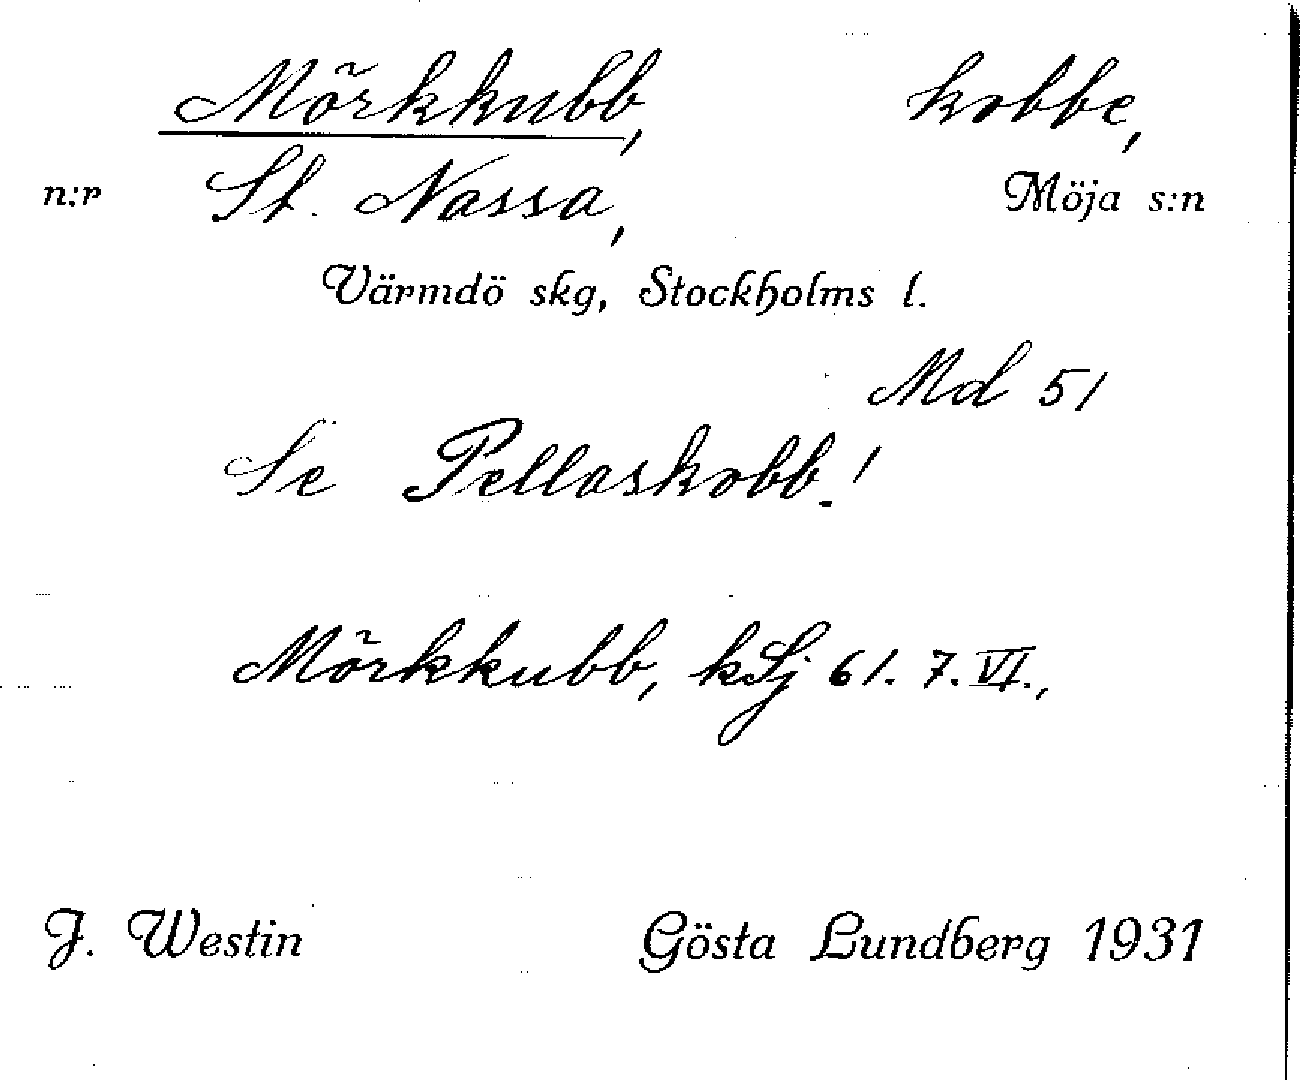 Mörkkubb, kobbe,
n:r St. Nassa, Möja s:n
Värmdö skg, Stockholms l.
Md 51
Se Pellaskobb.!
Mörkkubb, kSj 61. 7. VI.,
J. Westin Gösta Lundberg 1931